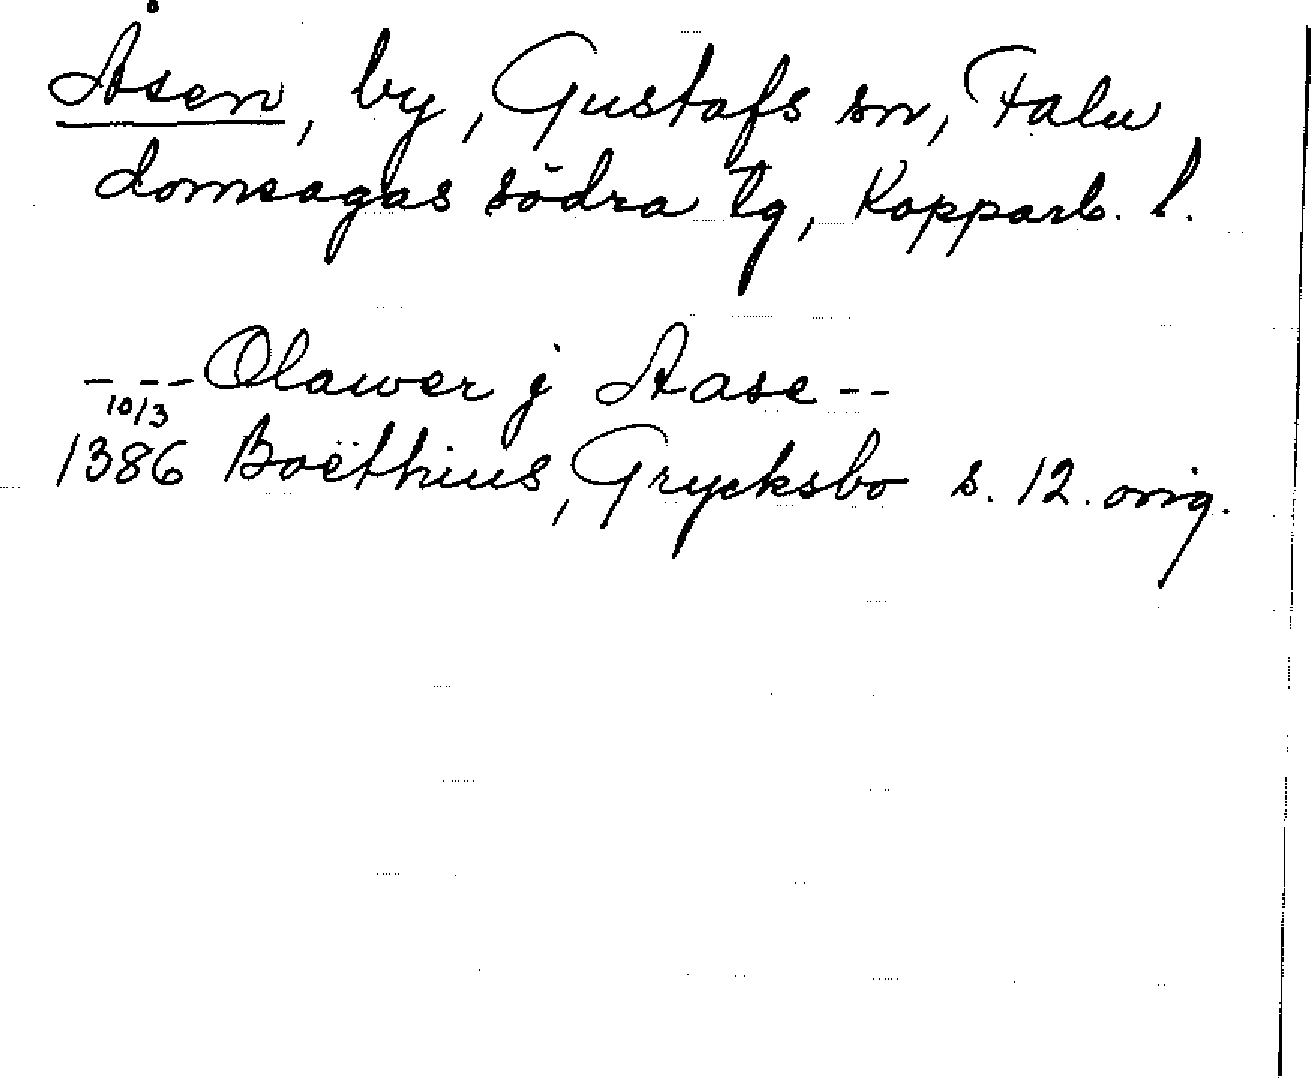 Åsen, by, Gustafs sn, Falu
domsagas södra tg, Kopparb. l.
- - - Olawer j Aase - -
10/3
1386 Boëthius, Grycksbo s. 12. orig.